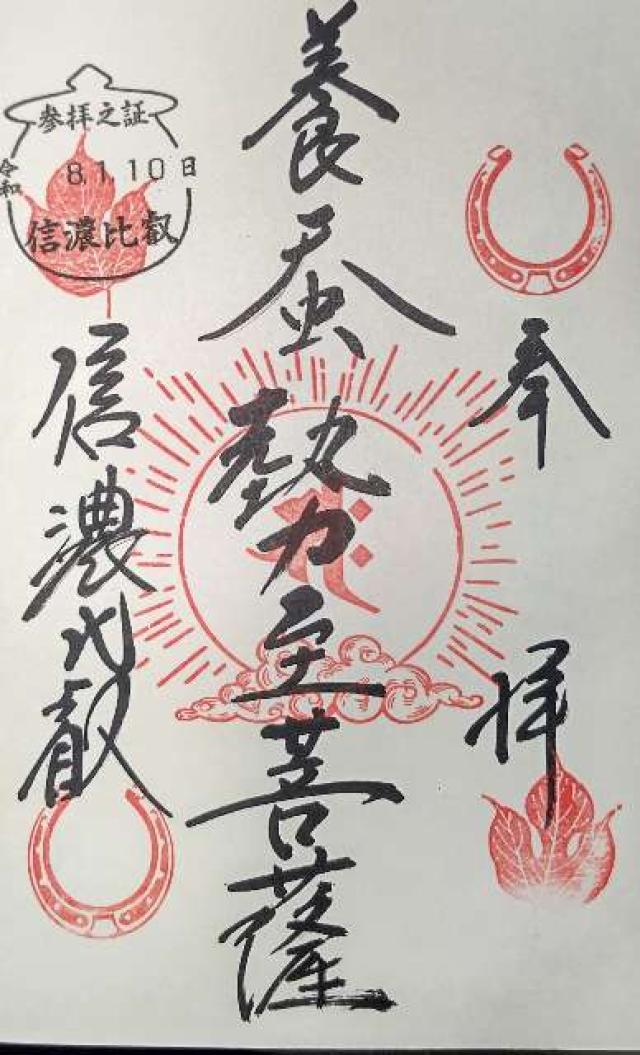 奉拝
養蚕勢至菩薩
信濃比叡
参拝之証
令和 8.1.10日
信濃比叡